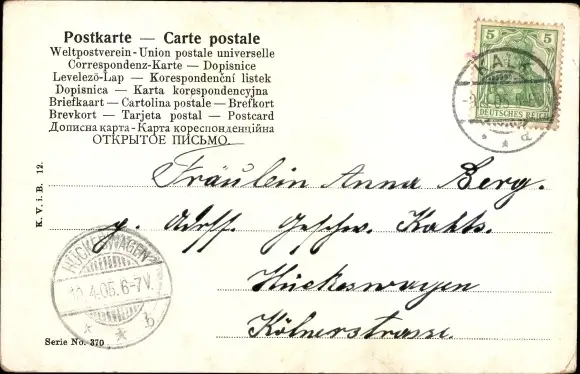 Postkarte — Carte postale
Weltpostverein - Union postale universelle
Correspondenz-Karte — Dopisnice
Levelező-Lap — Korespondenční listek
Dopisnica — Karta korespondencyjna
Briefkaart — Cartolina postale — Brefkort
Brevkort — Tarjeta postal — Postcard
Дописна карта - Карта кореспонденційна
ОТКРЫТОЕ ПИСЬМО.
5 5
DEUTSCHES REICH
KALK
d
Fräulein Anna Berg.
Geschw.
Hückeswagen
Kölnerstrasse.
HÜCKESWAGEN
10.4.05. 6-7V.
b
K. V. i. B. 12.
Serie No. 370